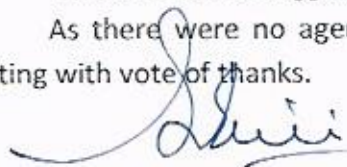 As there were no agen
ting with vote of thanks.